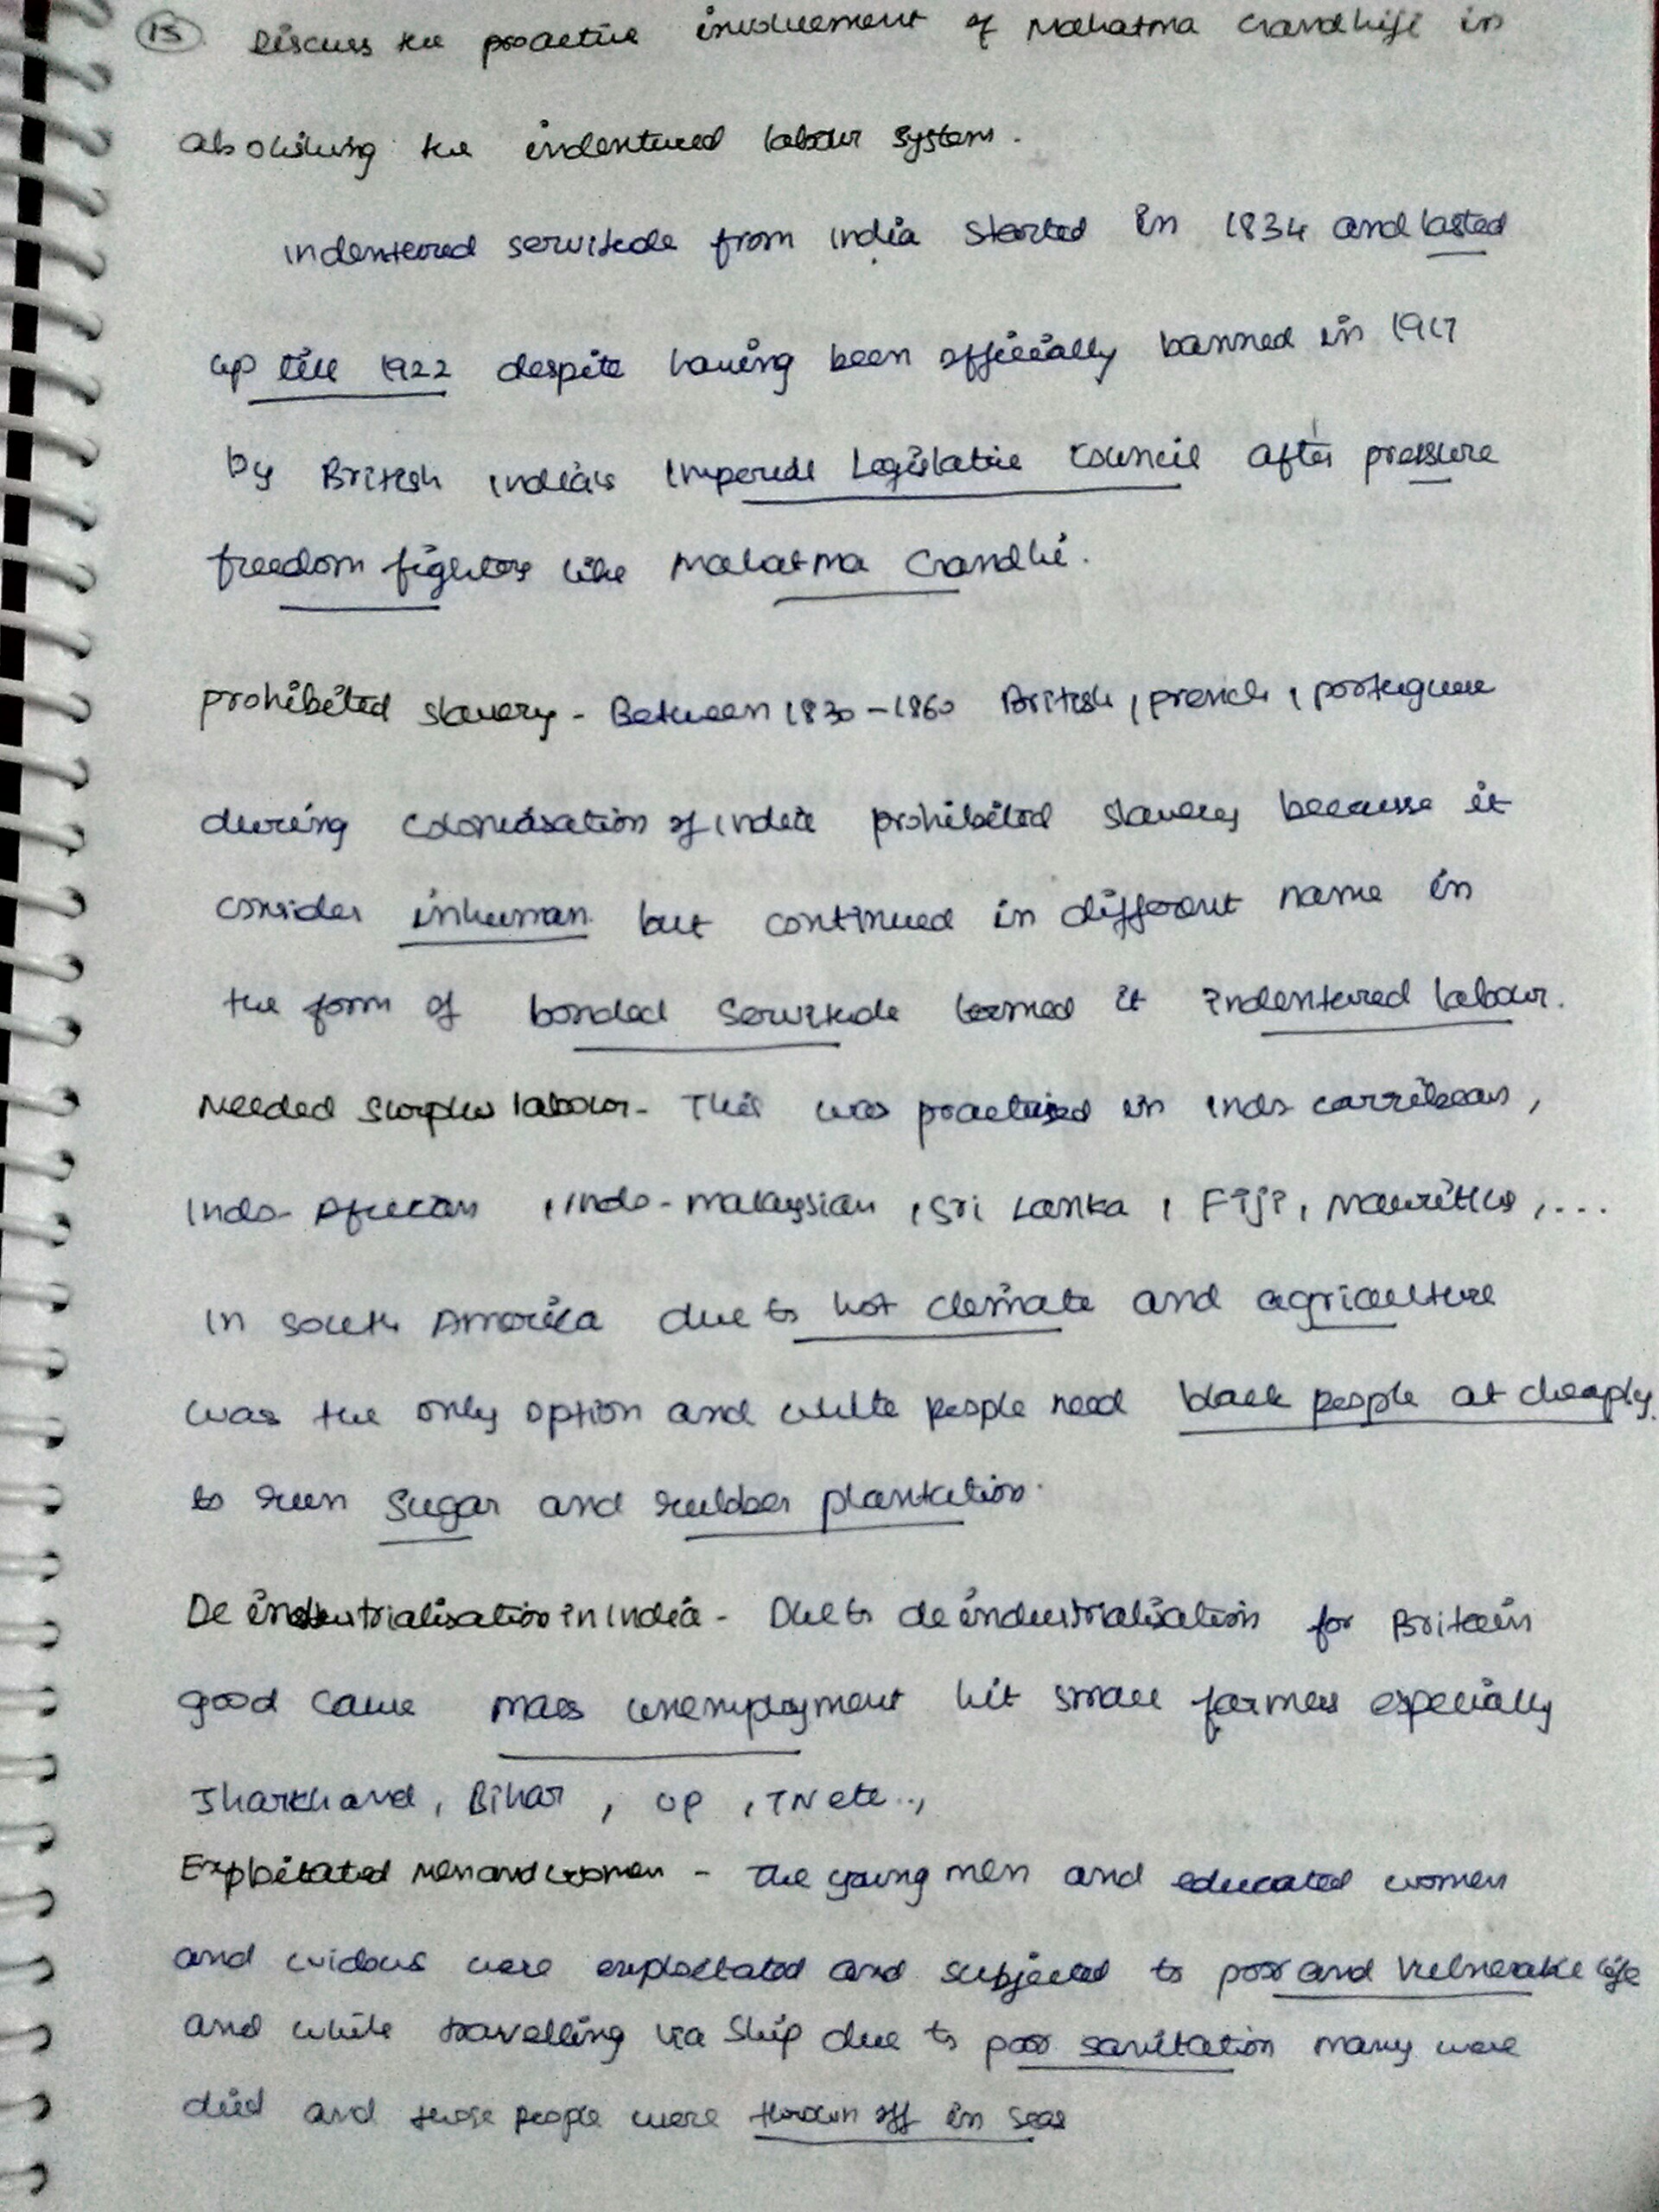 15. Discuss the proactive involvement of Mahatma Gandhiji in
abolishing the indentured labour system.
indentered servitude from india started in 1834 and lasted
up till 1922 despite having been officially banned in 1917
by British india's Imperial Legislative council after pressure
freedom fighters like Mahatma Gandhi.
prohibited slavery - Between 1830-1860 British, french, portuguese
during colonisation of india prohibited slavery because it
consider inhuman but continued in different name in
the form of bonded servitude termed it indentured labour.
Needed surplus labour - This was practised in indo carribeans,
Indo-African, indo-malaysian, Sri Lanka, Fiji, Mauritius,...
In south America due to hot climate and agriculture
was the only option and white people need black people at cheaply
to run sugar and rubber plantation.
De industrialisation in India - Due to de industrialisation for Britain
good cause mass unemployment hit small farmers especially
Jharkhand, Bihar, UP, TN etc..,
Exploitated Men and women - The young men and educated women
and widows were exploitated and subjected to poor and vulnerable life
and while travelling via Ship due to poor sanitation many were
died and those people were thrown off in seas